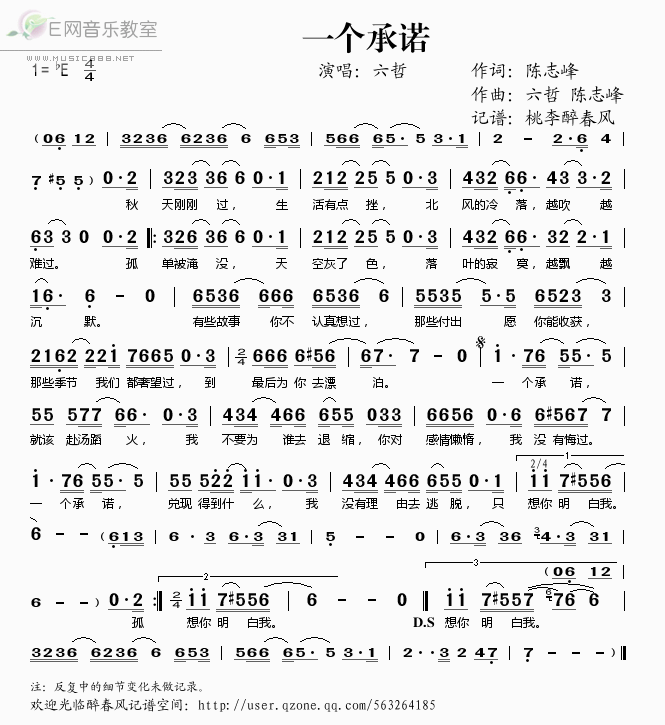 E网音乐教室
WWW.MUSIC888.NET
一个承诺
1= ♭E 4/4
演唱：六哲
作词：陈志峰
作曲：六哲 陈志峰
记谱：桃李醉春风
(06 12 | 3236 6236 6 653 | 566 65· 5 3·1 | 2 - 2·6 4 |
7 #5 5) 0·2 | 323 36 6 0·1 | 212 25 5 0·3 | 432 66· 43 3·2 |
秋 天刚刚 过， 生 活有点 挫， 北 风的冷 落，越吹 越
63 3 0 0·2 ‖: 326 36 6 0·1 | 212 25 5 0·3 | 432 66· 32 2·1 |
难过。 孤 单被淹 没， 天 空灰了 色， 落 叶的寂 寞，越飘 越
16· 6 - 0 | 6536 666 6536 6 | 5535 5·5 6523 3 |
沉 默。 有些故事 你不 认真想过， 那些付出 愿 你能收获，
2162 221 7665 0·3 | 2/4 666 6#56 | 67· 7 - 0 | 1·76 55·5 |
那些季节 我们 都奢望过， 到 最后为 你 去漂 泊。 一个 承 诺，
55 577 66· 0·3 | 434 466 655 033 | 6656 0·6 6#567 7 |
就该 赴汤蹈 火， 我 不要为 谁去 退 缩， 你对 感情懒惰， 我 没 有悔过。
1·76 55·5 | 55 522 11· 0·3 | 434 466 655 0·1 | 2/4 11 7#556 |
一个承 诺， 兑现 得到什 么， 我 没有理 由去 逃 脱， 只 想你 明 白我。
1
6 - - (613 | 6·3 6·3 31 | 5 - - 0 | 6·3 36 4·3 31 |
2
3
(06 12
6 - -) 0·2 :‖ 2/4 11 7#556 | 6 - - 0 ‖ 11 7#557 76 6 |
孤 想你 明 白我。 D.S 想你 明 白我。
3236 6236 6 653 | 566 65· 5 3·1 | 2 - - 0·3 | 2·3 2 47 | 7 - - 0 ‖
注：反复中的细节变化未做记录。
欢迎光临醉春风记谱空间：http://user.qzone.qq.com/563264185